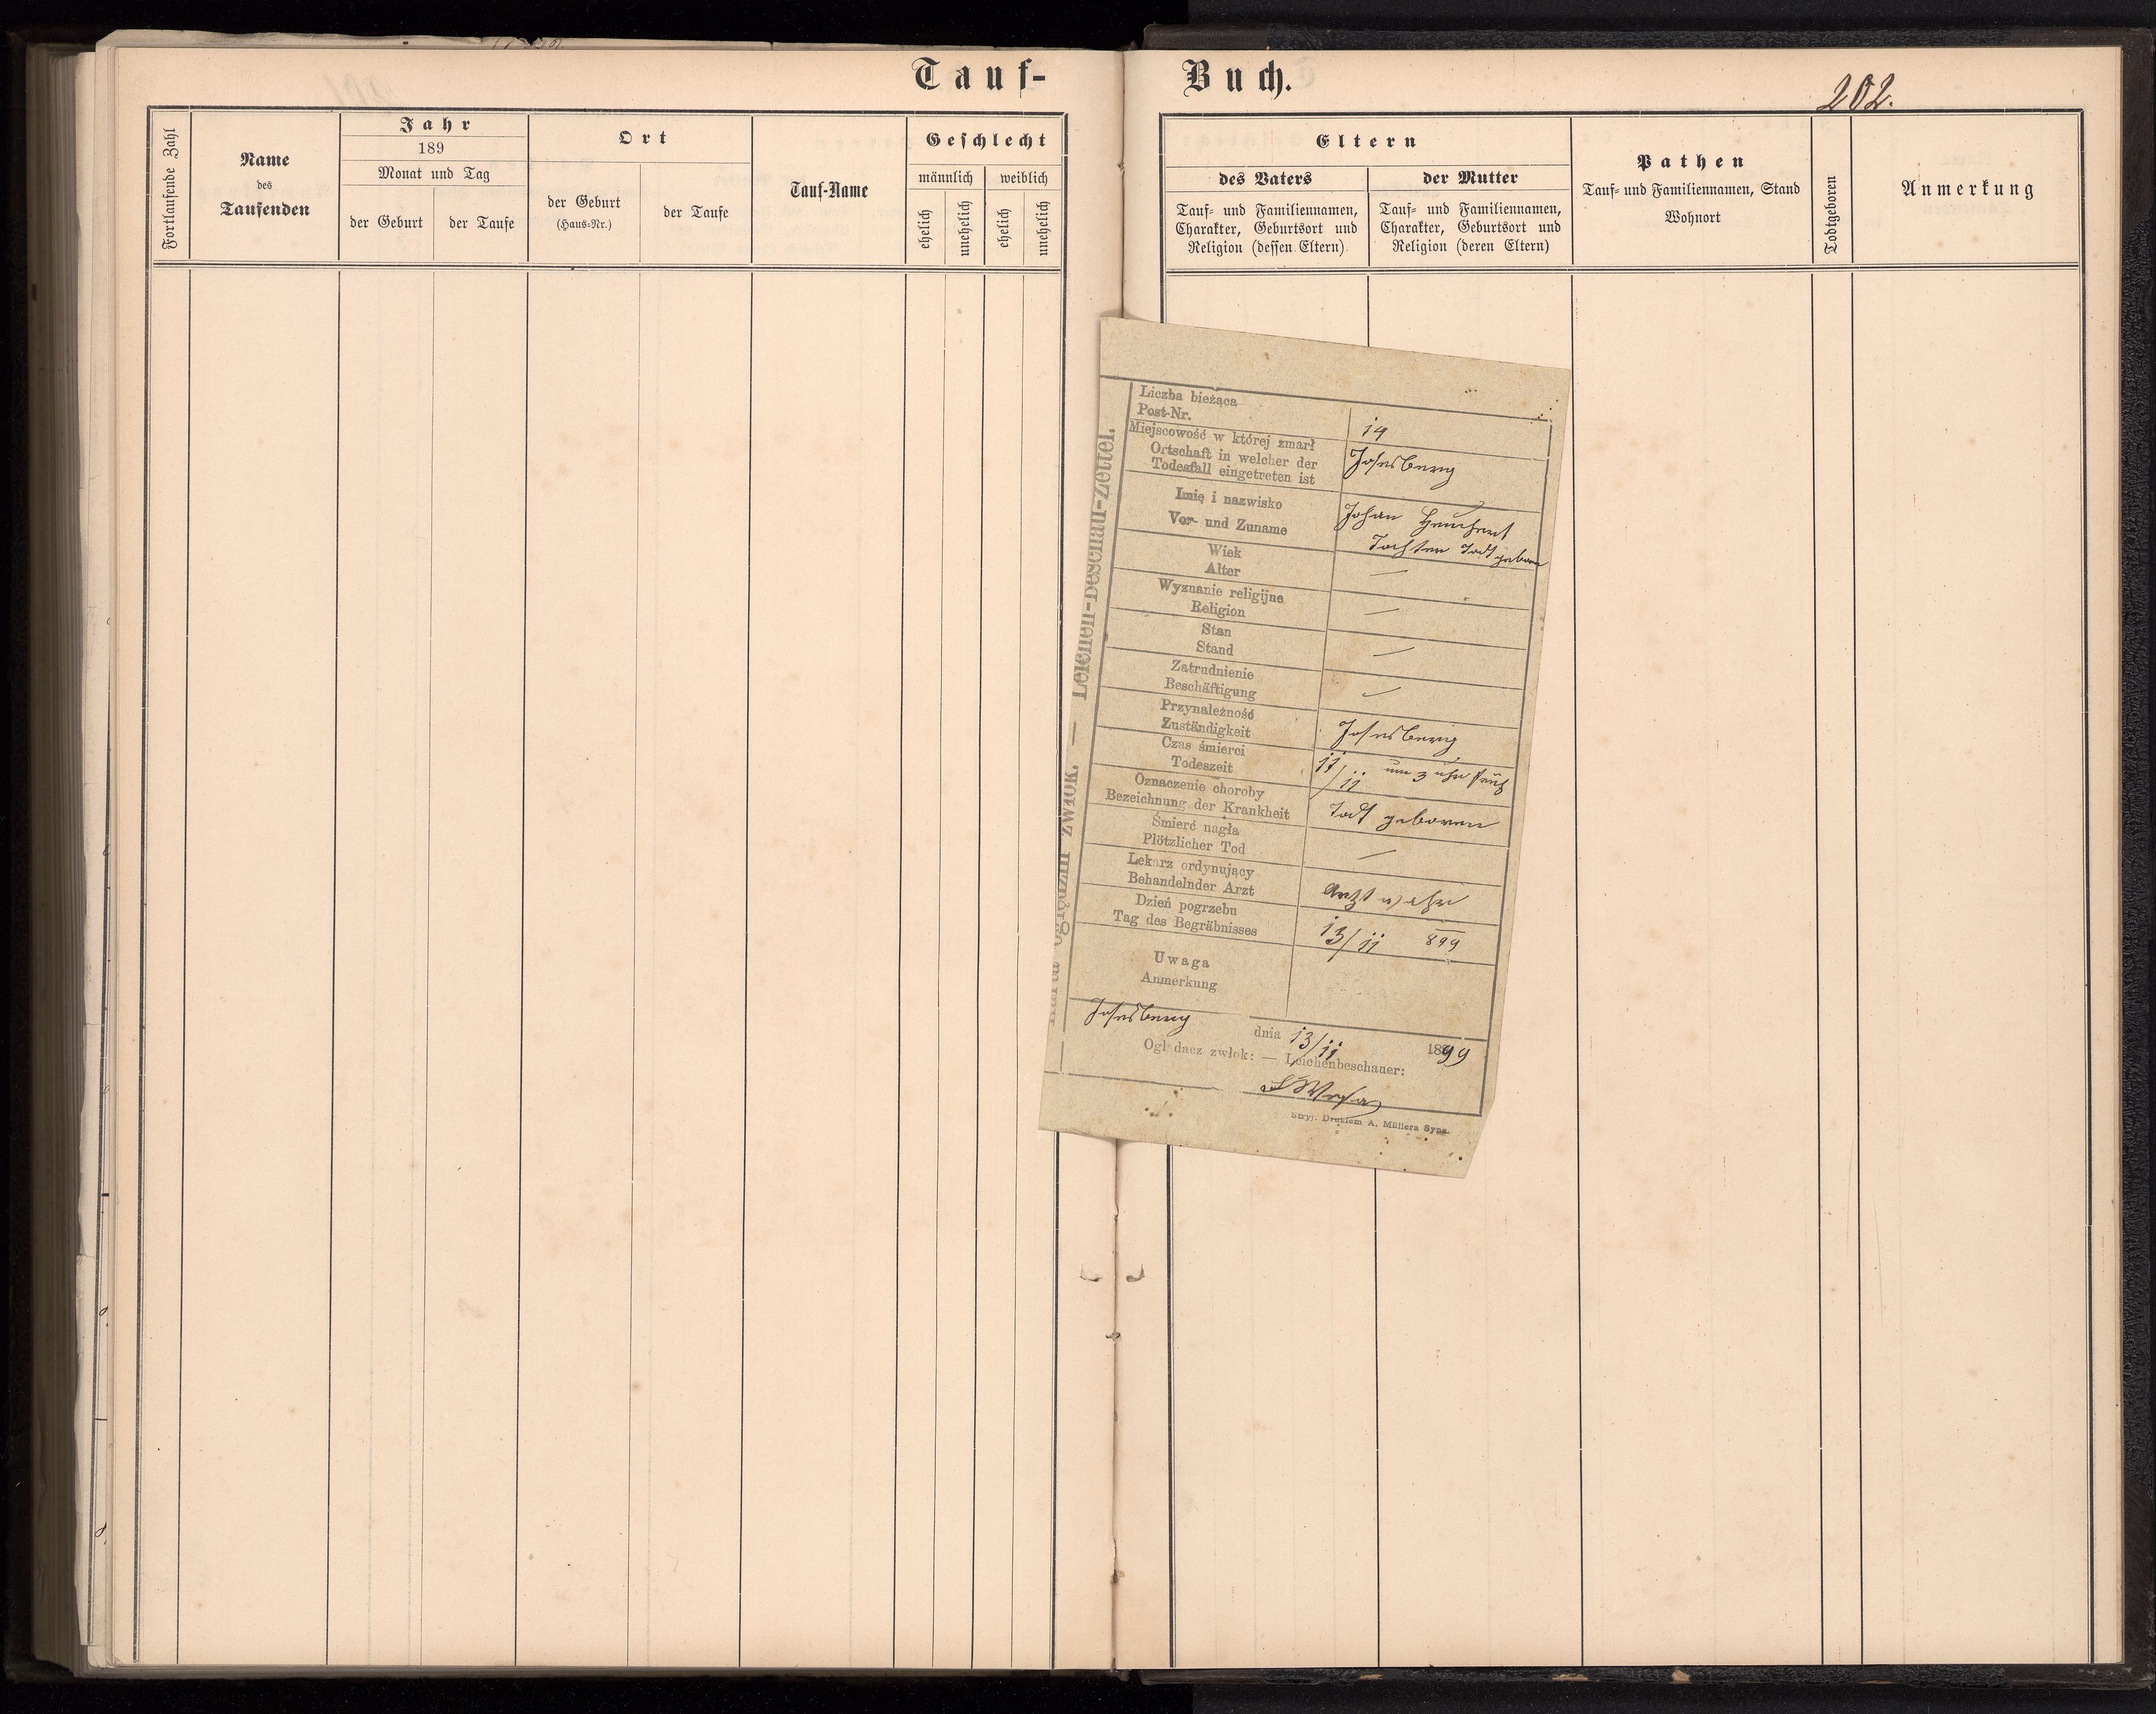 Tauf-
Fortlaufende Zahl
Name
des
Taufenden
Jahr
189
Monat und Tag
der Geburt
der Taufe
Ort
der Geburt
(Haus-Nr.)
der Taufe
Tauf-Name
Geschlecht
männlich
weiblich
ehelich
unehelich
ehelich
unehelich
Buch.
202.
Eltern
des Vaters
Tauf- und Familiennamen,
Charakter, Geburtsort und
Religion (dessen Eltern)
der Mutter
Tauf- und Familiennamen,
Charakter, Geburtsort und
Religion (deren Eltern)
Pathen
Tauf- und Familiennamen, Stand
Wohnort
Todtgeboren
Anmerkung
zwłok. — Leichen-Beschau-Zettel.
Liczba bieżąca
Post-Nr.
14
Miejscowość w której zmarł
Ortschaft in welcher der
Todesfall eingetreten ist
Josefsberg
Imię i nazwisko
Vor- und Zuname
Johan
Tochter Todt geboren
Wiek
Alter
—
Wyznanie religijne
Religion
—
Stan
Stand
—
Zatrudnienie
Beschäftigung
—
Przynależność
Zuständigkeit
Josefsberg
Czas śmierci
Todeszeit
11/11 um 3 uhr früh
Oznaczenie choroby
Bezeichnung der Krankheit
Todt geboren
Śmierć nagła
Plötzlicher Tod
—
Lekarz ordynujący
Behandelnder Arzt
Arzt
Dzień pogrzebu
Tag des Begräbnisses
13/11 899
Uwaga
Anmerkung
Josefsberg dnia 13/11 1899
Oglądacz zwłok: — Leichenbeschauer:
Stryj. Drukiem A. Müllera Syna.